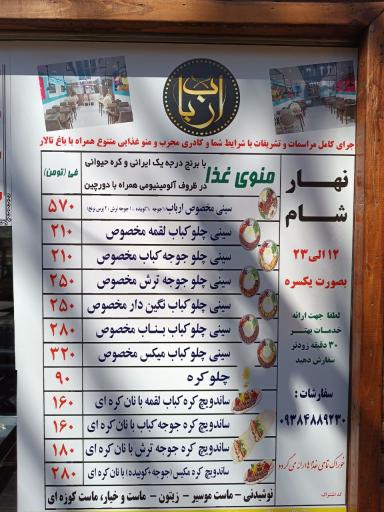 ارباب
اجرای کامل مراسمات و تشریفات با شرایط شما و کادری مجرب و منو غذایی متنوع همراه با باغ تالار
منوی غذا
با برنج درجه یک ایرانی و کره حیوانی
در ظروف آلومینیومی همراه با دورچین
فی (تومن)
سینی مخصوص ارباب ۵۷۰
سینی چلو کباب لقمه مخصوص ۲۱۰
سینی چلو جوجه کباب مخصوص ۲۱۰
سینی چلو جوجه ترش مخصوص ۲۵۰
سینی چلو کباب نگین دار مخصوص ۲۵۰
سینی چلو کباب بناب مخصوص ۲۸۰
سینی چلو کباب میکس مخصوص ۳۲۰
چلو کره ۹۰
ساندویچ کره کباب لقمه با نان کره ای ۱۶۰
ساندویچ کره جوجه کباب با نان کره ای ۱۶۰
ساندویچ کره جوجه ترش با نان کره ای ۱۸۰
ساندویچ کره مکیس (جوجه+کوبیده) با نان کره ای ۲۸۰
نوشیدنی - ماست موسیر - زیتون - ماست و خیار، ماست کوزه ای
نهار
شام
۱۲ الی ۲۳
بصورت یکسره
لطفا جهت ارائه
خدمات بهتر
۳۰ دقیقه زودتر
سفارش دهید
سفارشات :
۰۹۳۸۴۸۸۹۲۳۰
خوراک تمامی غذاها ارائه می گردد
کد اشتراک